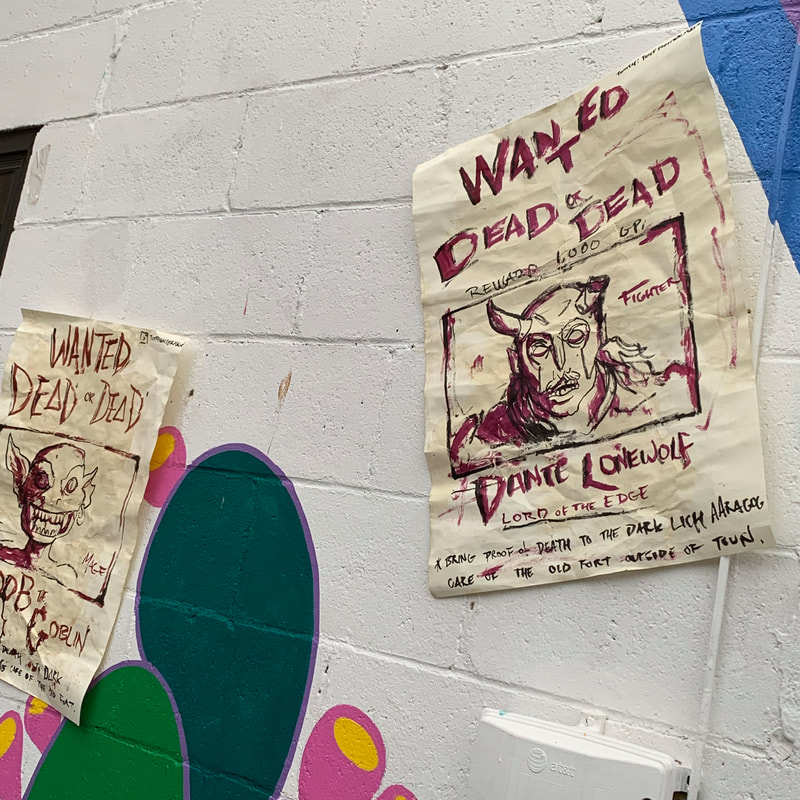 WANTED
DEAD OR DEAD
MAGE
OB THE
GOBLIN
CARE OF THE OLD FORT.
WANTED
DEAD OR DEAD
REWARD 1,000 GP.
FIGHTER
DANTE LONEWOLF
LORD OF THE EDGE
* BRING PROOF OF DEATH TO THE DARK LICH AARAGOG
CARE OF THE OLD FORT OUTSIDE OF TOWN.
AT&T